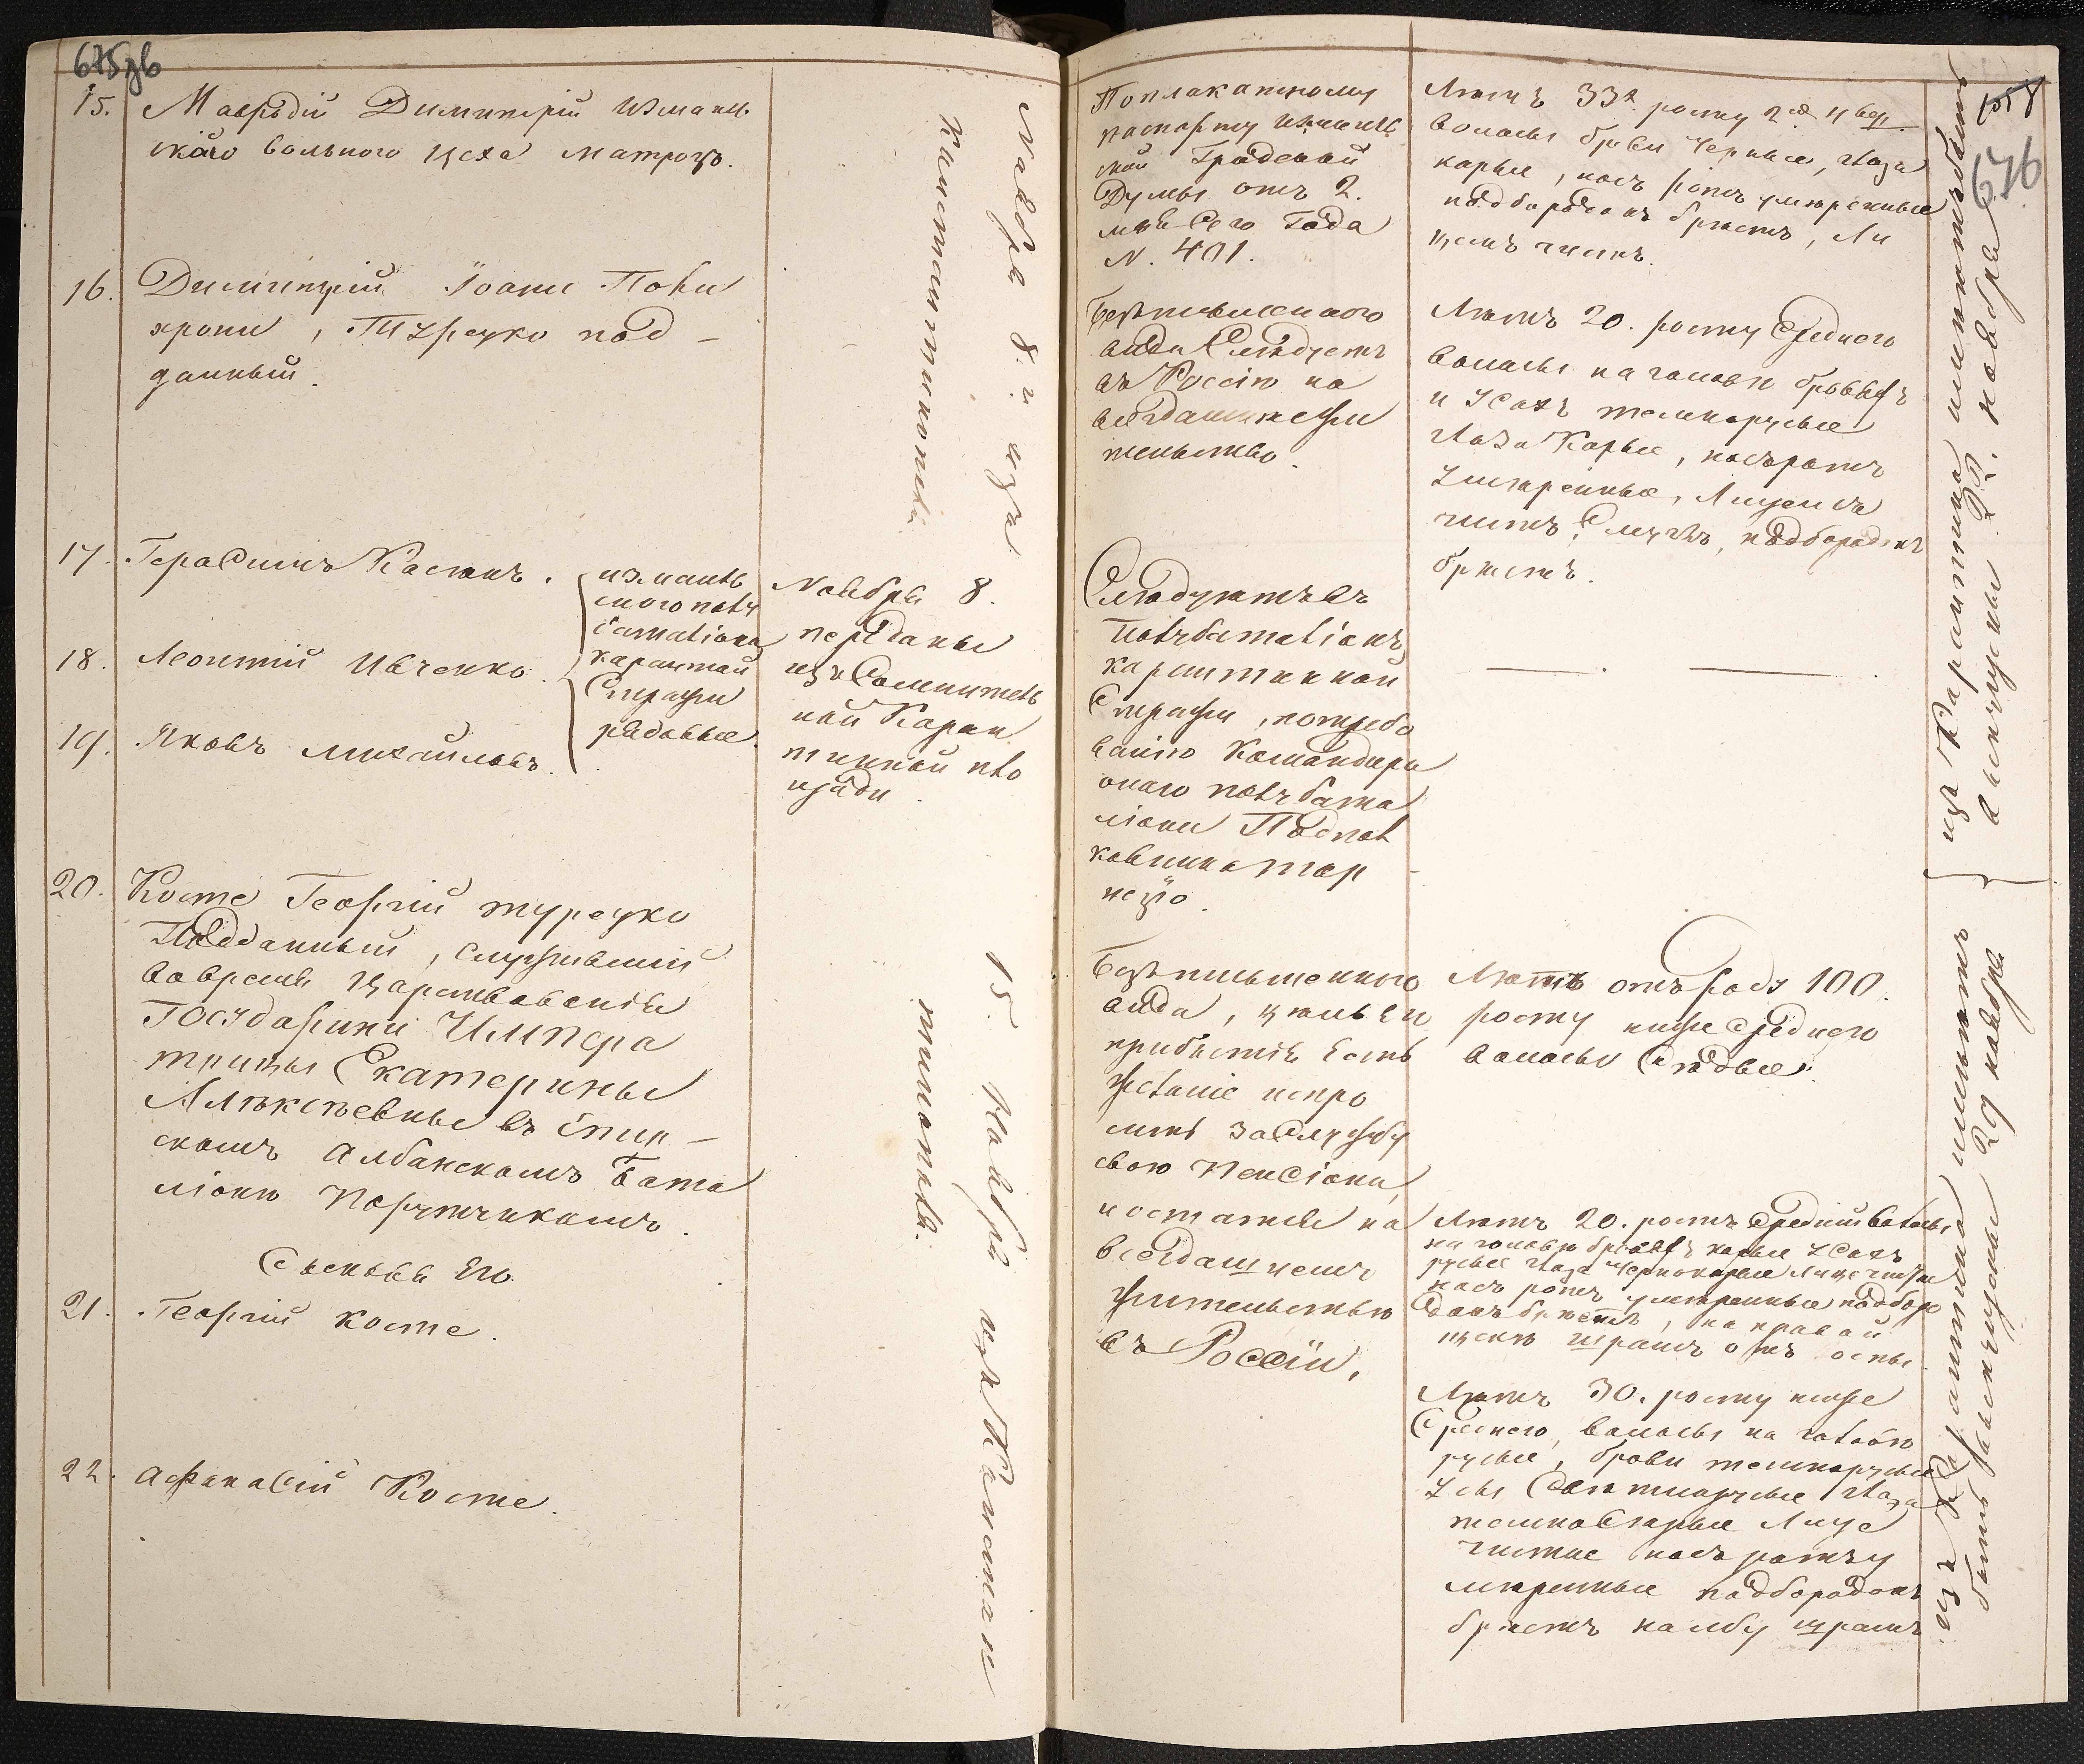 675 об
15. Маврудій Димитрій Измаиль
скаго вольного цеха матрозъ.
16. Димитрій Іоани Поли
хрони, Турецко под-
данный.
17. Герасимъ Костюкъ.
18. Леонтій Ивченко.
19. Яковъ Михайловъ.
измаиль
ского полу
баталіона
карантин
Стражи
рядовые
20. Косте Георгій турецко
Подданный, служившій
вовремя Царствованія
Государини Импера
трицы Екатерины
Алѣксѣевны въ
скомъ Албанскомъ Бата
ліонѣ Порутчикомъ.
Сыновья Его
21. Георгій Косте.
22. Афанасій Косте.
Ноября 8. изъ
Константинополя.
Ноября 8.
переданы
изъ Сомнитель
ной Каран
тинной пло
щади.
15. Ноября изъ Констан
тинополя.
Поплакатному
паспорту Измаиль
ской Градской
Думы отъ 2.
мая Сего Года
N. 401.
Безписьменного
вида Слѣдуетъ
въ Россію на
всегдашнежи
тельство.
Слѣдуютъ въ
Полубаталіонъ
карантинной
Стражи, потребо
ванію Командира
онаго полубата
ліона Подпол
ковника Тор
незіо.
Безъ письменного
вида, цѣль Его
прибытія Есть
Желаніе испро
сить заСлужбу
свою Пенсіона,
и остаться на
всегдашнемъ
жительствѣ
въ Россіи.
658
676
Лѣтъ 33х росту 2 ар 4 вер.
волосы брови черные, глаза
карые, носъ ротъ умѣренные
подбородокъ брѣетъ, Ли
цемъ чистъ.
Лѣтъ 20. росту Средного
волосы на головѣ бровяхъ
и Усахъ темнорусые
глаза Карые, носъ ротъ
Умѣренные, Лицемъ
чистъ, Смуглъ, подбородокъ
брѣетъ.
— . — .
Лѣтъ отъ роду 100.
росту ниже Средного
волосы Сѣдые.
Лѣтъ 20. ростъ Средній волосы
на головѣ бровяхъ карые Усахъ
русые глаза Чернокарые Лице чистое
носъ ротъ умѣренные подборо
докъ брѣетъ, на правой
щекѣ шрамъ отъ оспы.
Лѣтъ 30. росту ниже
Средного, волосы на головѣ
русые, брови темнорусые
Усы Свѣтлорусые глаза
темноСѣрые Лице
чистое носъ ротъ у
мѣренные подбородокъ
брѣетъ на лбу шрамъ
изъ Карантина
выпущены 22. ноября
изъ Карантина имѣютъ
быть выпущены 29 ноября